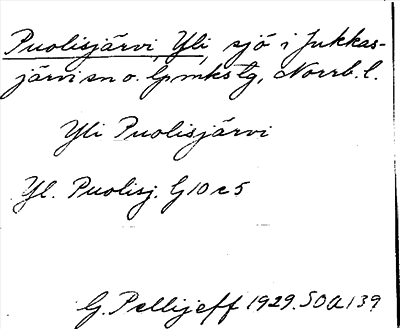 Puolisjärvi, Yli, sjö i Jukkas-
järvi sn o. lpmkstg, Norrb. l.
Yli Puolisjärvi
Yl. Puolisj. G 10 c 5
G. Pellijeff 1929. SOA 139